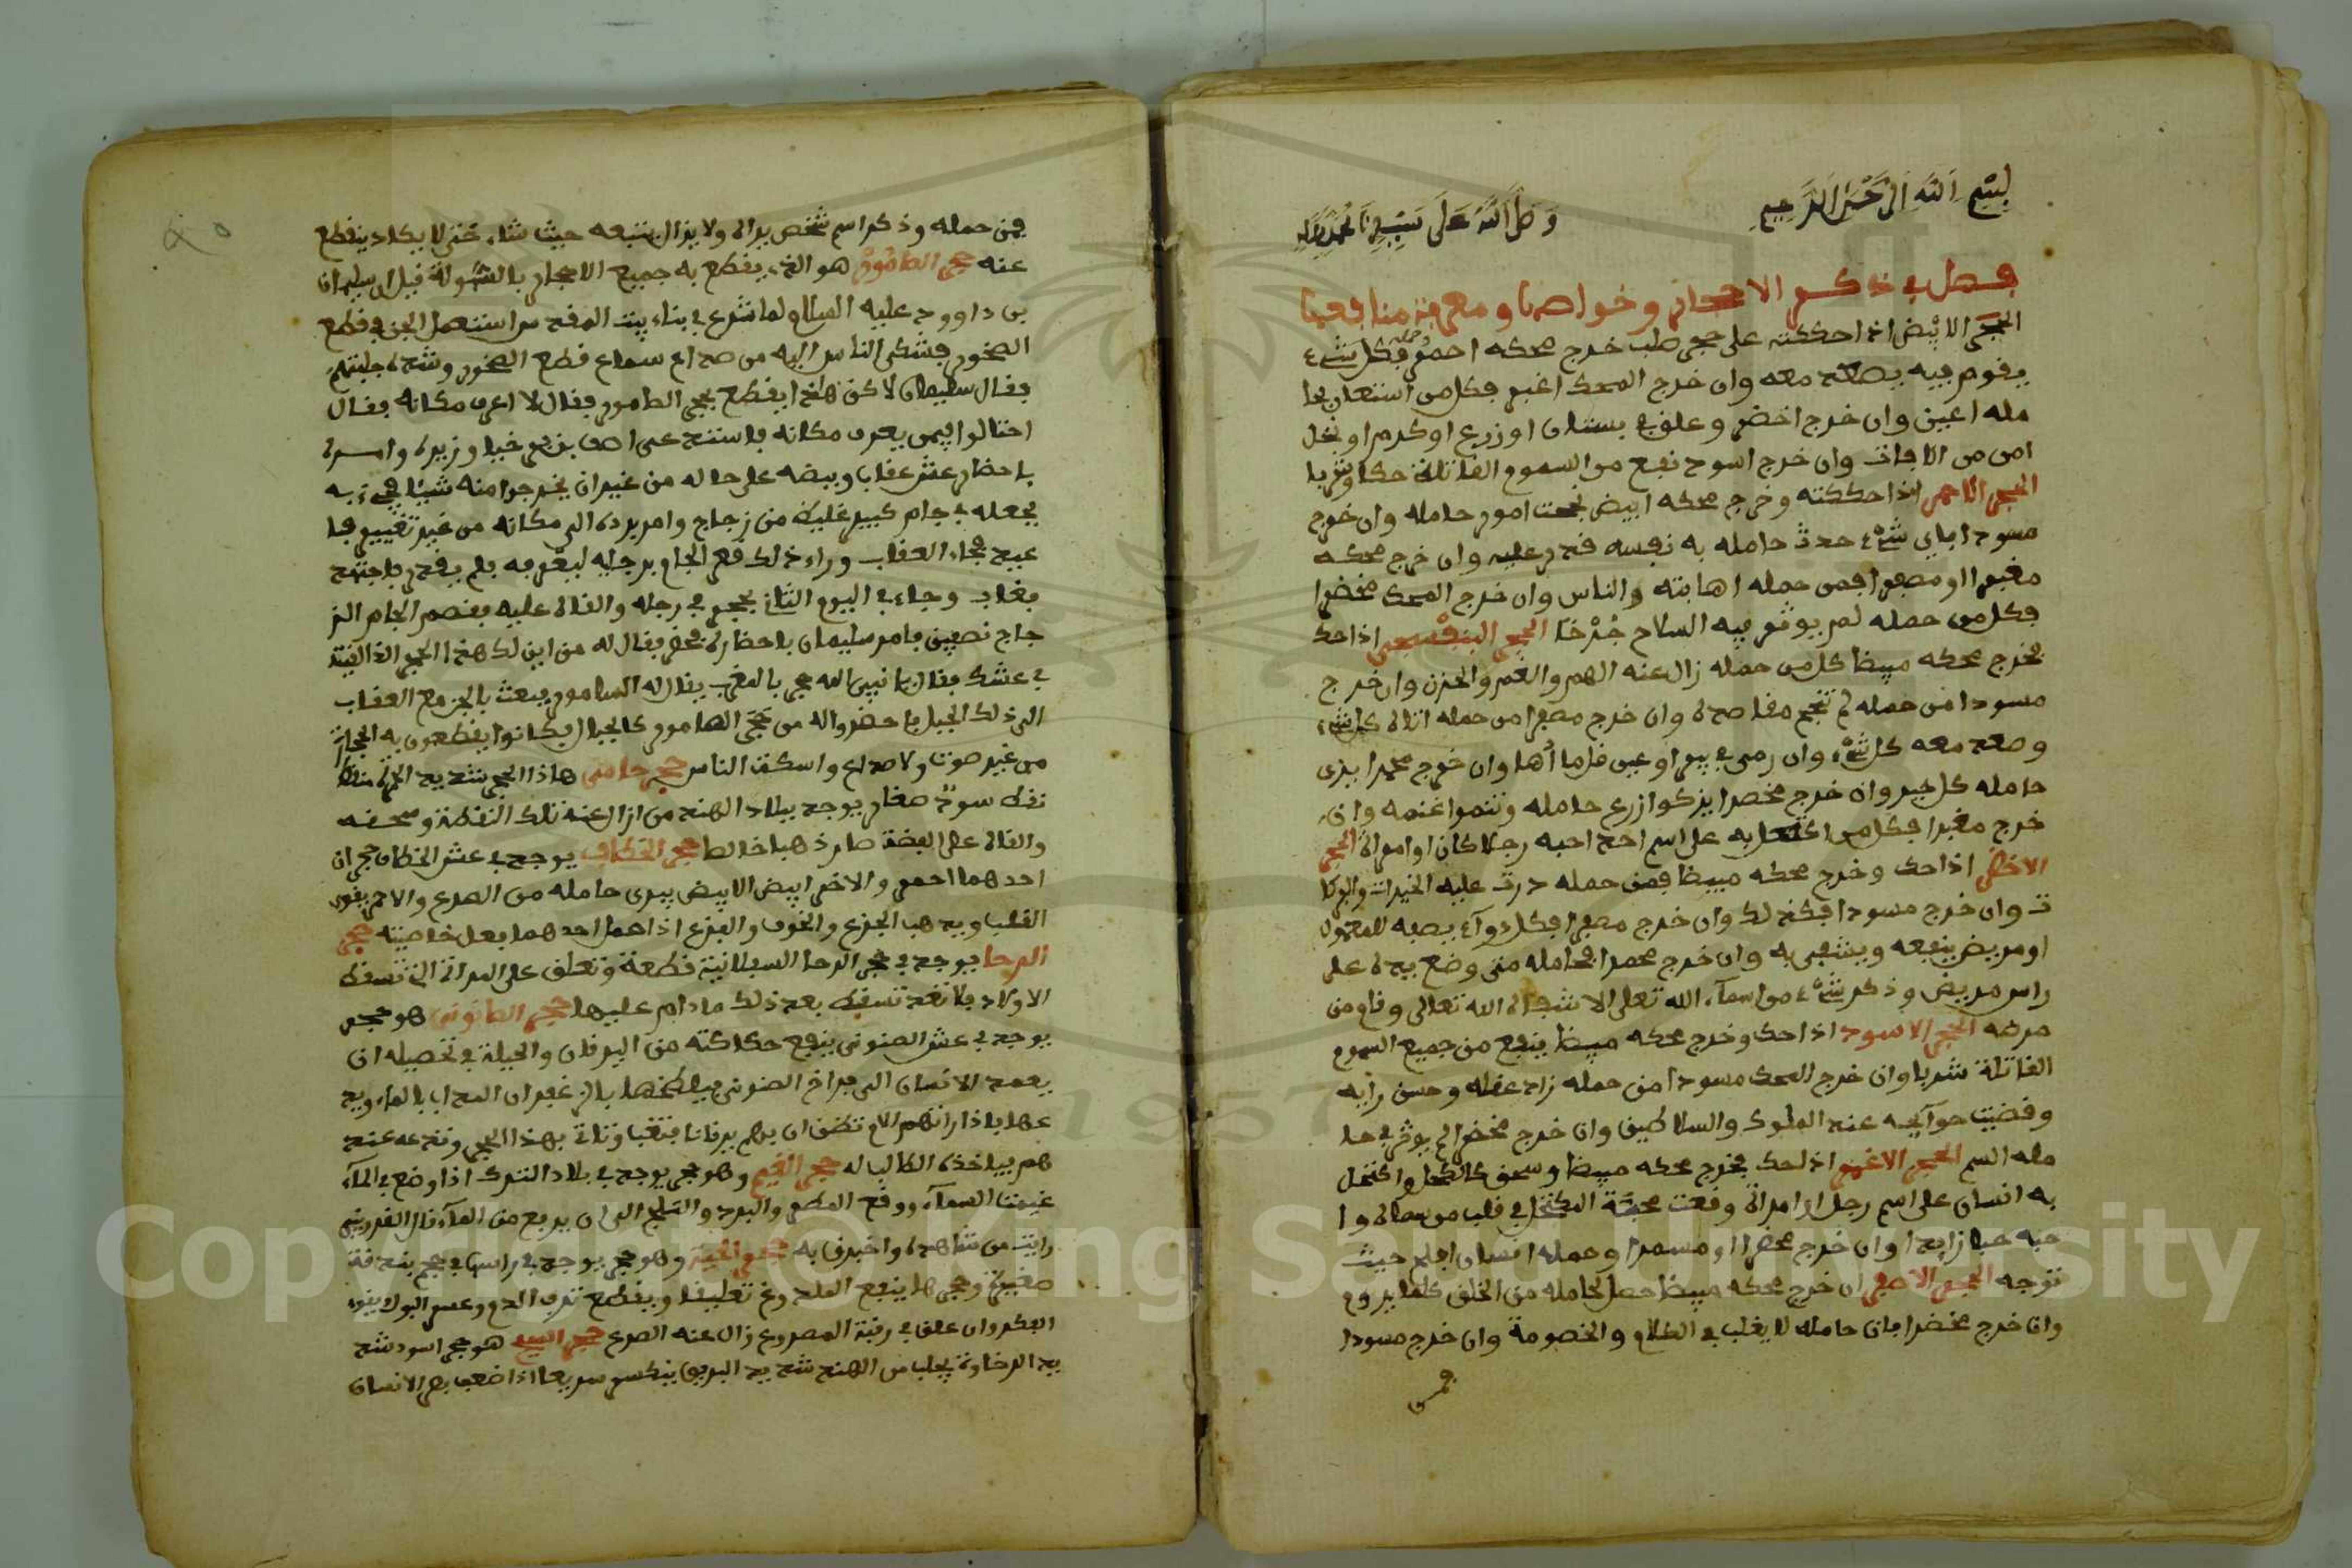 بسم الله الرحمن الرحيم وصلى الله على سيدنا محمد وآله
فصل في ذكر الاحجار وخواصها ومعرفة منافعها
الحجر الابيض اذا حككته على حجر صلب خرج محكه احمر فكل شيء
يقوم فيه يصعد معه وان خرج المحك اغبر فكل من استعان بحا
مله اعين وان خرج اخضر وعلق في بستان او زرع او كرم او نخل
امن من الافات وان خرج اسود نفع من السموم القاتلة حكا وشربا
الحجر الاحمر اذا حككته وخرج محكه ابيض نجحت امور حامله وان خرج
مسودا فاي شيء حدث حامله به نفسه قدر عليه وان خرج محكه
مغبرا او مصفرا فمن حمله اهابته والناس وان خرج المحك مخضرا
فكل من حمله لم يوثر فيه السلاح جرحا الحجر البنفسجي اذا حك
فخرج محكه مبيضا كل من حمله زال عنه الهم والغم والحزن وان خرج
مسودا فمن حمله لم تنجح مقاصده وان خرج مصفرا من حمله اتاه كل شيء
وصعد معه كل شيء وان رمى في بير او عين قل ماؤها وان خرج محمرا يرى
حامله كل خير وان خرج مخضرا يزكوا زرع حامله وتنموا غنمه وان
خرج مغبرا فكل من اكتحل به على اسم احد احبه رجلا كان او امراة الحجر
الاخضر اذا حك وخرج محكه مبيضا فمن حمله درت عليه الخيرات والبركا
ت وان خرج مسودا فكذلك وان خرج مصفرا فكل دواء يصفه للمعلول
او مريض ينفعه ويشفى به وان خرج محمرا فحامله متى وضع يده على
راس مريض وذكر شيء من اسماء الله تعلى الا شفاه الله تعالى وقام من
مرضه الحجر الاسود اذا حك وخرج محكه مبيضا ينفع من جميع السموم
القاتلة شربا وان خرج المحك مسودا فمن حمله زاد عقله وحسن رايه
وقضيت حوآيجه عند الملوك والسلاطين وان خرج مخضرا لم يوثر في حا
مله السم الحجر الاغبر اذا حك فخرج محكه مبيضا وسحق كالكحل واكتحل
به انسان على اسم رجل او امراة وقعت محبة المكتحل في قلب من سماه وا
حبه حبا زايدا وان خرج محمرا او مسمرا وحمله انسان افلح حيث
توجه الحجر الاصفر ان خرج محكه مبيضا حصل لحامله من الخلق كلما يروم
وان خرج مخضرا فان حامله لا يغلب في الكلام والخصومة وان خرج مسودا
فمن
فمن حمله وذكر اسم شخص يراه ولا يزال يتبعه حيث شاء حتى لا يكاد ينقطع
عنه حجر الطامور هو الذي يقطع به جميع الاحجار بالسهولة قيل ان سليمان
بن داوود عليه السلام لما شرع في بناء بيت المقدس استعمل الجن في قطع
الصخور فشكى الناس اليه من صداع سماع قطع الصخور وشدة جلبتهم
فقال سليمان لاكن هاذا يقطع بحجر الطامور فقال لا اعرف مكانه فقال
احتالوا فيمن يعرف مكانه فاستدعى اصف بن برخيا وزيره وامره
باحضار عش عقاب وبيضه على حاله من غير ان يخرجوا منه شيئا فجيء به
فجعله في جام كبير غليظ من زجاج وامر برده الى مكانه من غير تغيير فا
عيد فجاء العقاب وراء ذلك فضر الجام برجليه ليغرفه فلم يقدر فاجتهد
فغاب وجاء في اليوم الثاني بحجر في رجله والقاه عليه فقصم الجام الز
جاج نصفين فامر سليمان باحضاره فحضر فقال له من اين لك هذا الحجر الذي القيته
في عشك فقال يا نبي الله حجر بالمغرب يقال له السامور فبعث بالجن مع العقاب
الى ذلك الجبل فاحضروا له من حجر الهامور كالجبال فكانوا يقطعون به الحجارة
من غير صوت ولا صداع واسكت الناس حجر حامى هاذا الحجر شديد الحمرة منقط
نقط سود صغار يوجد ببلاد الهند من ازال عنه تلك النقطة وسحقه
والقاه على الفضة صارت ذهبا خالصا حجر الخطاف يوجد في عش الخطاف حجران
احدهما احمر والاخر ابيض الابيض يبرى حامله من الصرع والاحمر يقوي
القلب ويذهب الجزع والخوف والفزع اذا حمل احدهما بعل خاصيته حجر
الرحا يوجد في حجر الرحا السفلانية قطعة وتعلق على المراة التي تسقط
الاولاد فلا تعد تسقط بعد ذلك مادام عليها حجر الصنونو هو حجر
يوجد في عش الصنونو ينفع حكاكته من اليرقان والحيلة في تحصيله ان
يعمد الانسان الى فراخ الصنونو فيلطخها بالزعفران المداب بالماء ويد
عها فاذا راتهم الام تظن ان بهم يرقانا فتغيب وتاتي بهذا الحجر وتدعه عند
هم فياخذه الطالب له حجر الغيم وهو حجر يوجد في بلاد الترك اذا وضع في الماء
غيمت السماء ووقع المطر والبرد والثلج الى ان يرفع من الماء قال القزويني
رايت من شاهده واخبرني به حجر الحية وهو حجر يوجد في راس في حجم بندقة
صغيرة وحجرها ينفع الملدوغ تعليقا ويقطع نزف الدم وعسر البول يقوي
الفكر وان علق في رقبة المصروع زال عنه الصرع حجر السبج هو حجر اسود شد
يد الرخاوة يجلب من الهند شديد البريق ينكسر سريعا اذا ضعف بصر الانسان
Copyright © King Saud University
1957